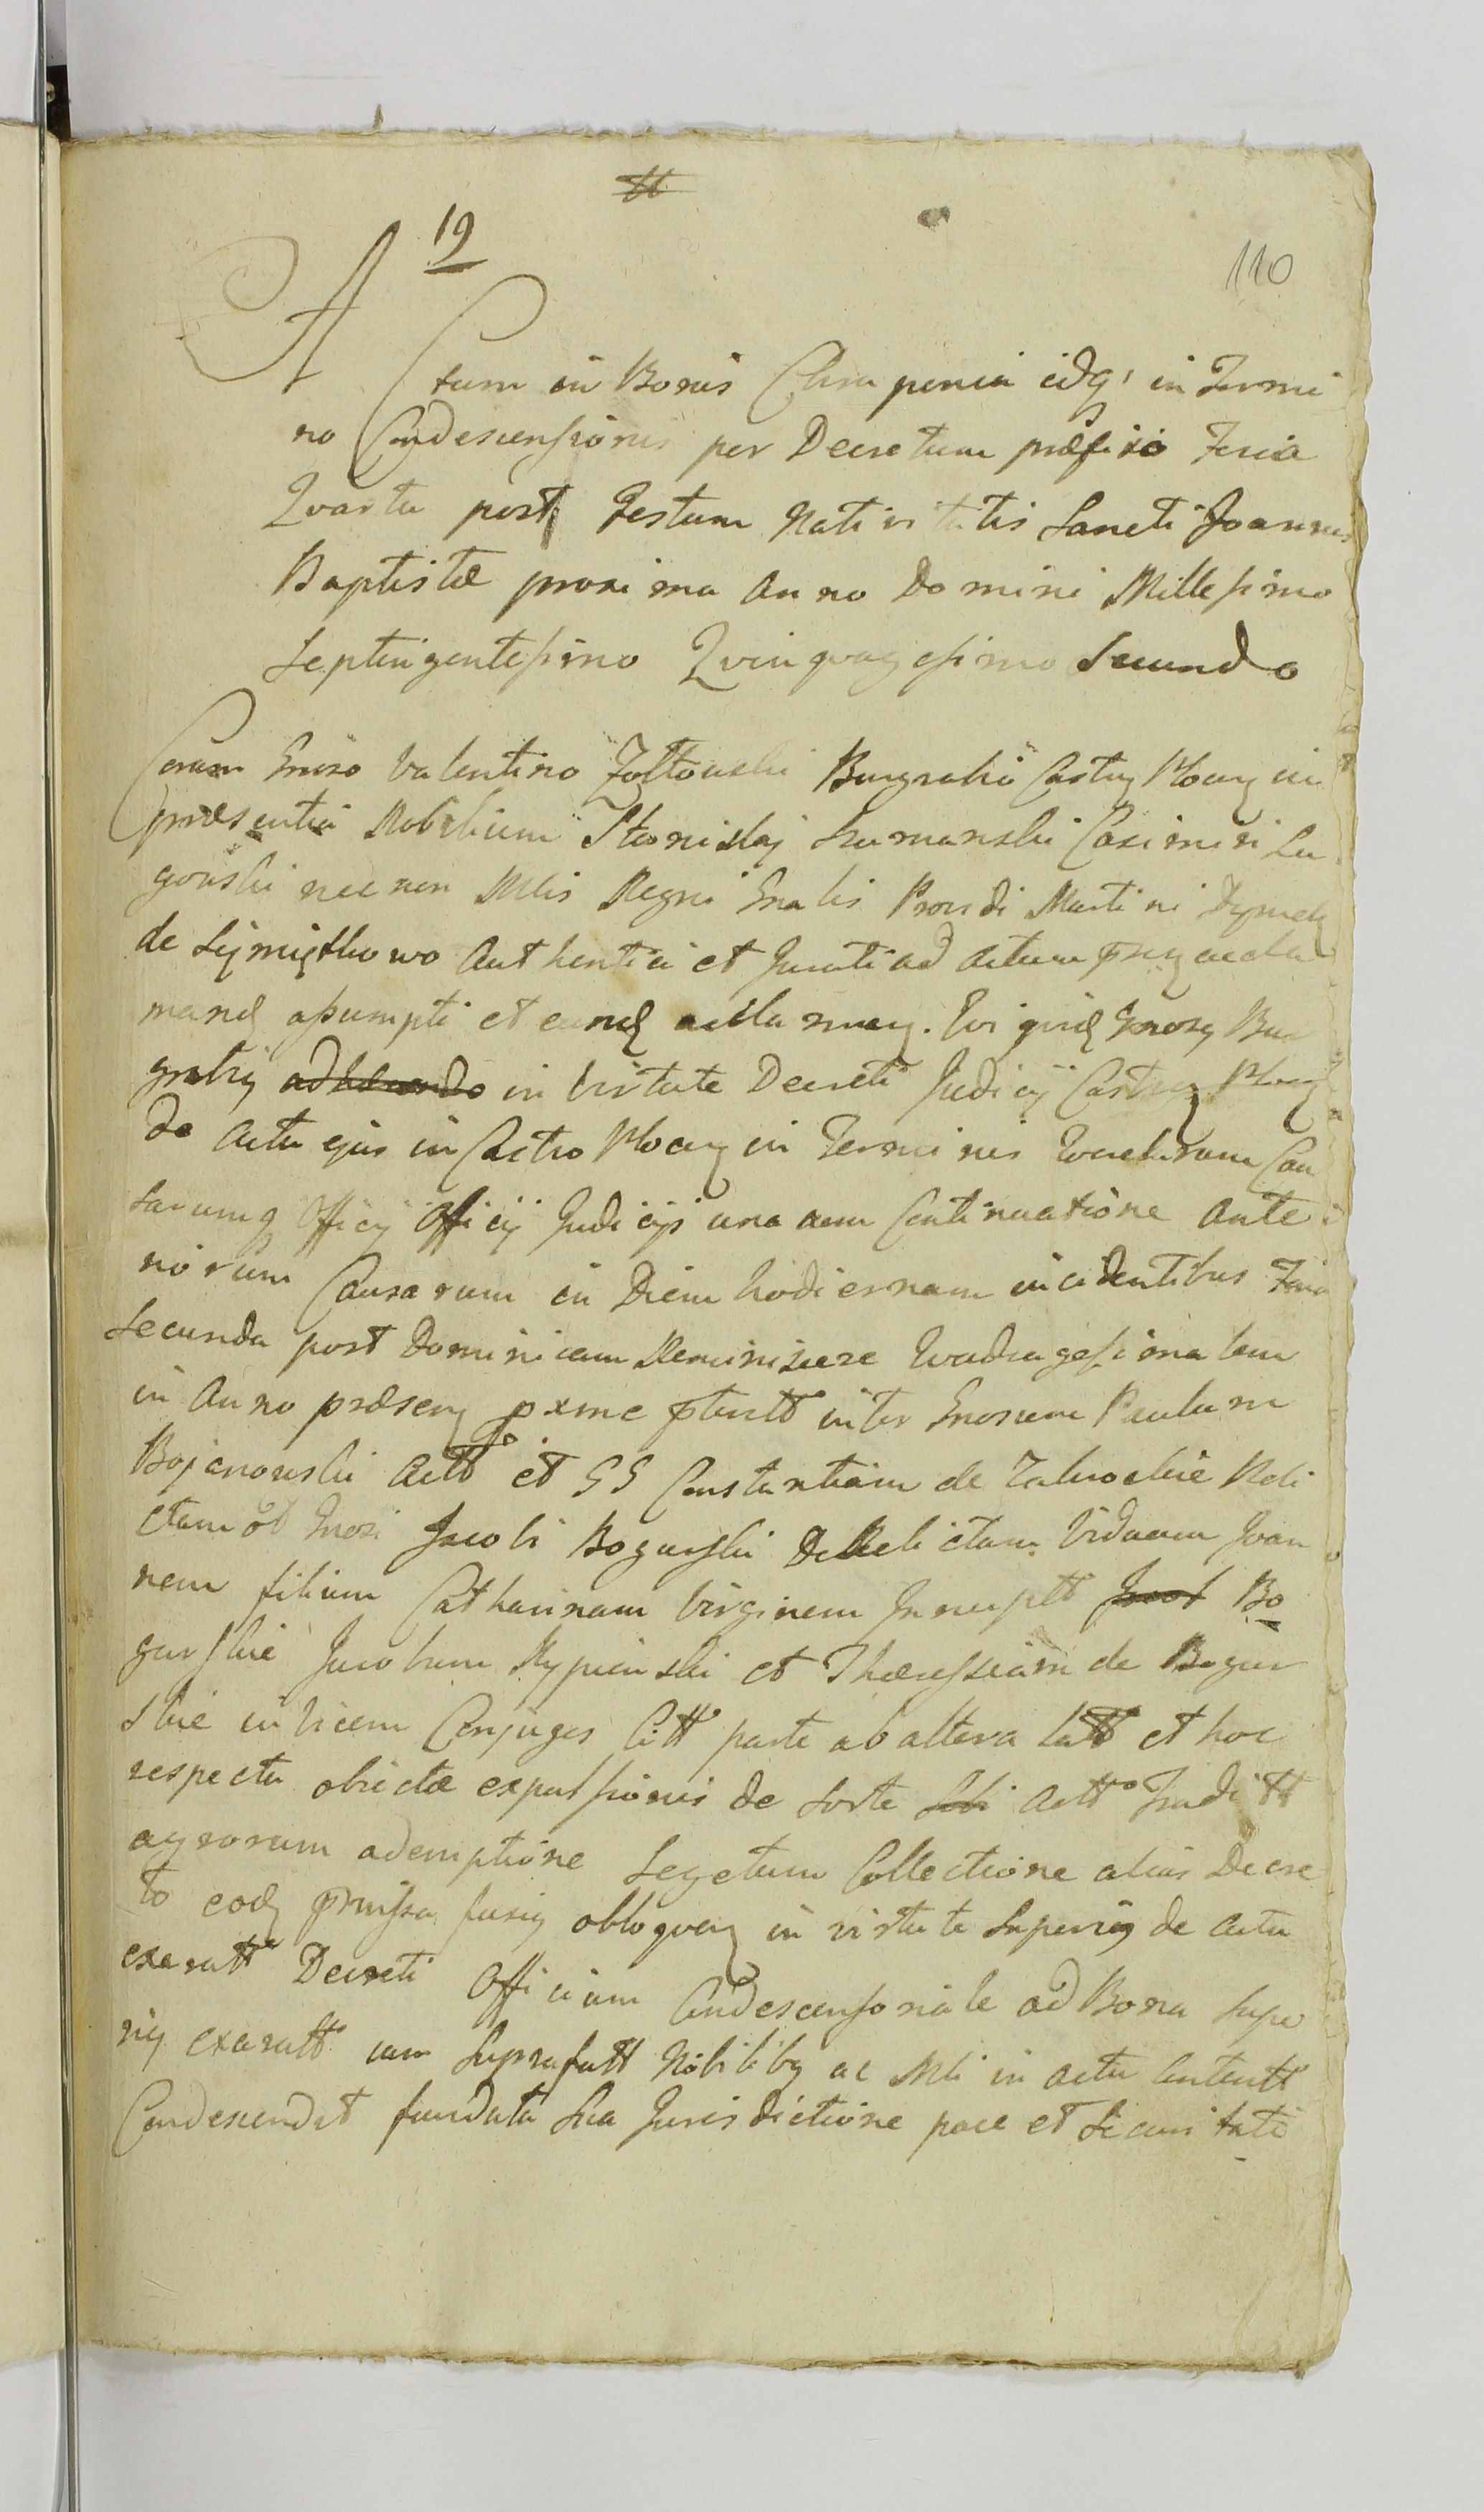 19
110
Actum in Bonis Chrapunia idq in Termi
no Condescensionis per Decretum præfixo Feria
Quarta post Festum Nativitatis Sancti Joannis
Baptistæ proxima Anno Domini Millesimo
Septingentesimo Quinquagesimo Secundo
Coram Gnoso Valentino Zołtowski Burgrabio Castren Plocen in
præsentia Nobilium Stanislaj Szumanski Casimiri Le
gowski nec non Mlis Regni Gnalis Provdi Martini
de Authentici et Jurati ad Actum
mand assumpti et eund acclaman. Qui quid Gnosq Bur
grabiq in Virtute Decreti Judicij Castren Plocen
de Actu ejus in Castro Plocen in Terminis Querelarum Cau
sarumq Officij Officij Judicijs una cum Continuatione Ante
riorum Causarum in Diem hodiernam incidentibus Feria
Secunda post Dominicam Reminiscere Quadragesimalem
in Anno præsen pxme inter Gnosum Paulum
Bojanowski Actt et GG Constantiam de Reli
ctam ol Gnosi Jacobi Bogurski Derelictam Viduam Joan
nem filium Catharinam Virginem Innuptt Bo
gurskie Jacobum Rypinski et Theressiam de Bogur
skie invicem Conjuges Citt parte ab altera latt et hoc
respectu obiectæ expulsionis de Sorte Actt Traditt
agrorum ademptione Segetum Collectione alias Decre
to eod fusiq obloquen in virtute Superiq de Actu
exaratt Decreti Officium Condescensoriale ad Bona Supe
riq exaratt cum Suprafatt Nobilibq ac Mli in Actu Contentt
Condescendit fundata Sua Jurisdictione pace et Securitate